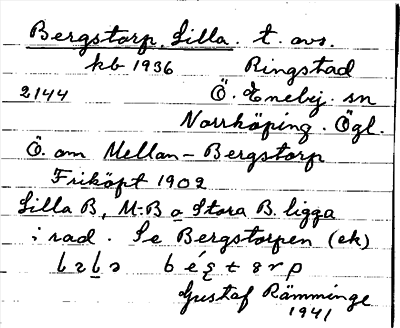 Bergstorp, Lilla. t. avs.
kb 1936 Ringstad
2144 Ö. Eneby. sn
Norrköping. Ögl.
Ö. om Mellan-Bergstorp
Friköpt 1902
Lilla B, M:B o Stora B. ligga
i rad. Se Bergstorpen (ek)
Gustaf Rämminge
1941